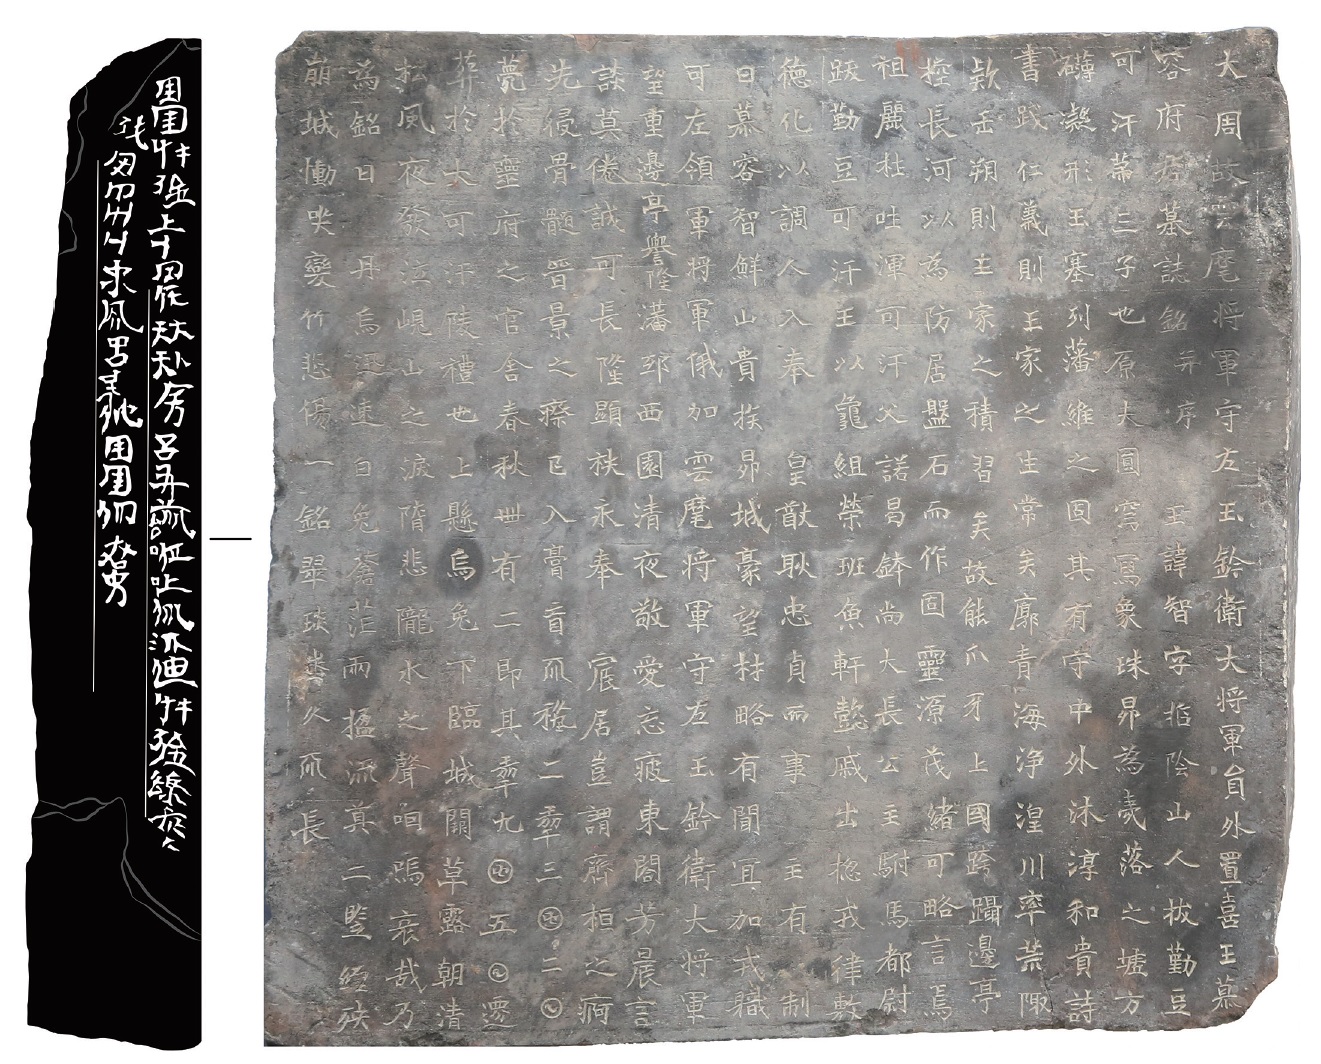 大周故雲麾將軍守左玉鈐衛大將軍貟外置喜王慕
容府君墓誌銘并序 王諱智字哲陰山人拔勤豆
可汗第三子也原夫圓穹寫象珠昴為夷落之墟方
礴凝形玉塞列藩維之固其有守中外沐淳和貴詩
書踐仁義則王家之生常矣廓青海淨湟川率荒陬
款𠙺朔則主家之積習矣故能爪牙上國跨躡邊亭
控長河以為防居盤石而作固靈源茂緒可略言焉
祖麗杜吐渾可汗父諾曷鉢尚大長公主駙馬都尉
跋勤豆可汗王以龜組榮班魚軒懿戚出惣戎律敷
德化以調人入奉 皇猷耿忠貞而事 主有制
曰慕容智鮮山貴族昴城豪望材略有聞宜加戎職
可左領軍將軍俄加雲麾將軍守左玉鈐衛大將軍
望重邊亭譽隆藩邸西園清夜敬愛忘疲東閣芳晨言
談莫倦誠可長隆顯秩永奉 宸居豈謂齊桓之痾
先侵骨髓晉景之瘵已入膏肓𠀑𥠢二𡕀三𠥱二𡆠
薨於靈府之官舍春秋卌有二即其𡕀九𠥱五𡆠遷
葬於大可汗陵禮也上懸烏兔下臨城闕草露朝清
松風夜發泣峴山之淚隋悲隴水之聲咽嗚哀哉乃
為銘曰 丹烏迅速白兔蒼茫兩楹流奠二鑒經殃
崩城慟哭變竹悲傷一銘翠琰 久𠀑長